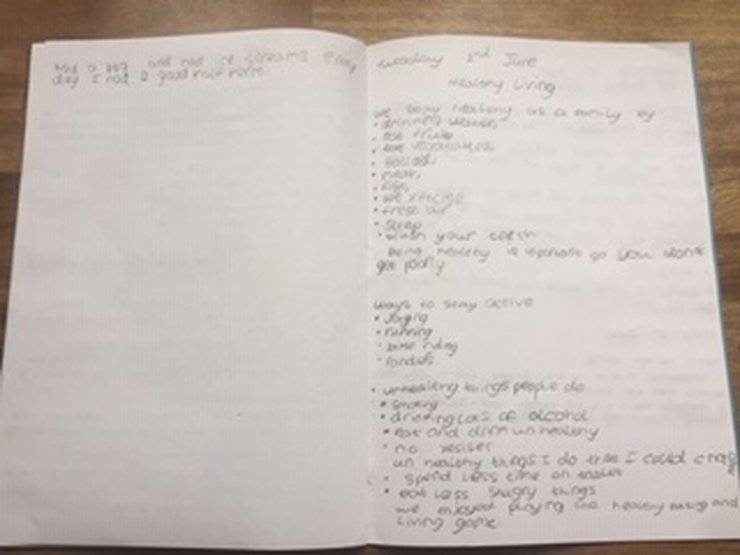 had a and had ice creams every
day I had a good half term
Tuesday 2nd June
Healthy Living
we stay healthy as a family by
• drinking water,
• eat fruit
• eat vegetables,
• salad,
• meat,
• fish,
• we
• fresh air
• sleep
• brush your teeth
Being healthy is so you dont
get poorly
ways to stay active
• Joging
• running
• bike riding
•
• unhealthy things people do
• Smoking
• drinking Lots of alcohol
• eat and drink un healthy
• no
un healthy things I do that I could chang
• Spend Less time on tablet
• eat Less things
we enjoyed playing the healthy eating and
Living game